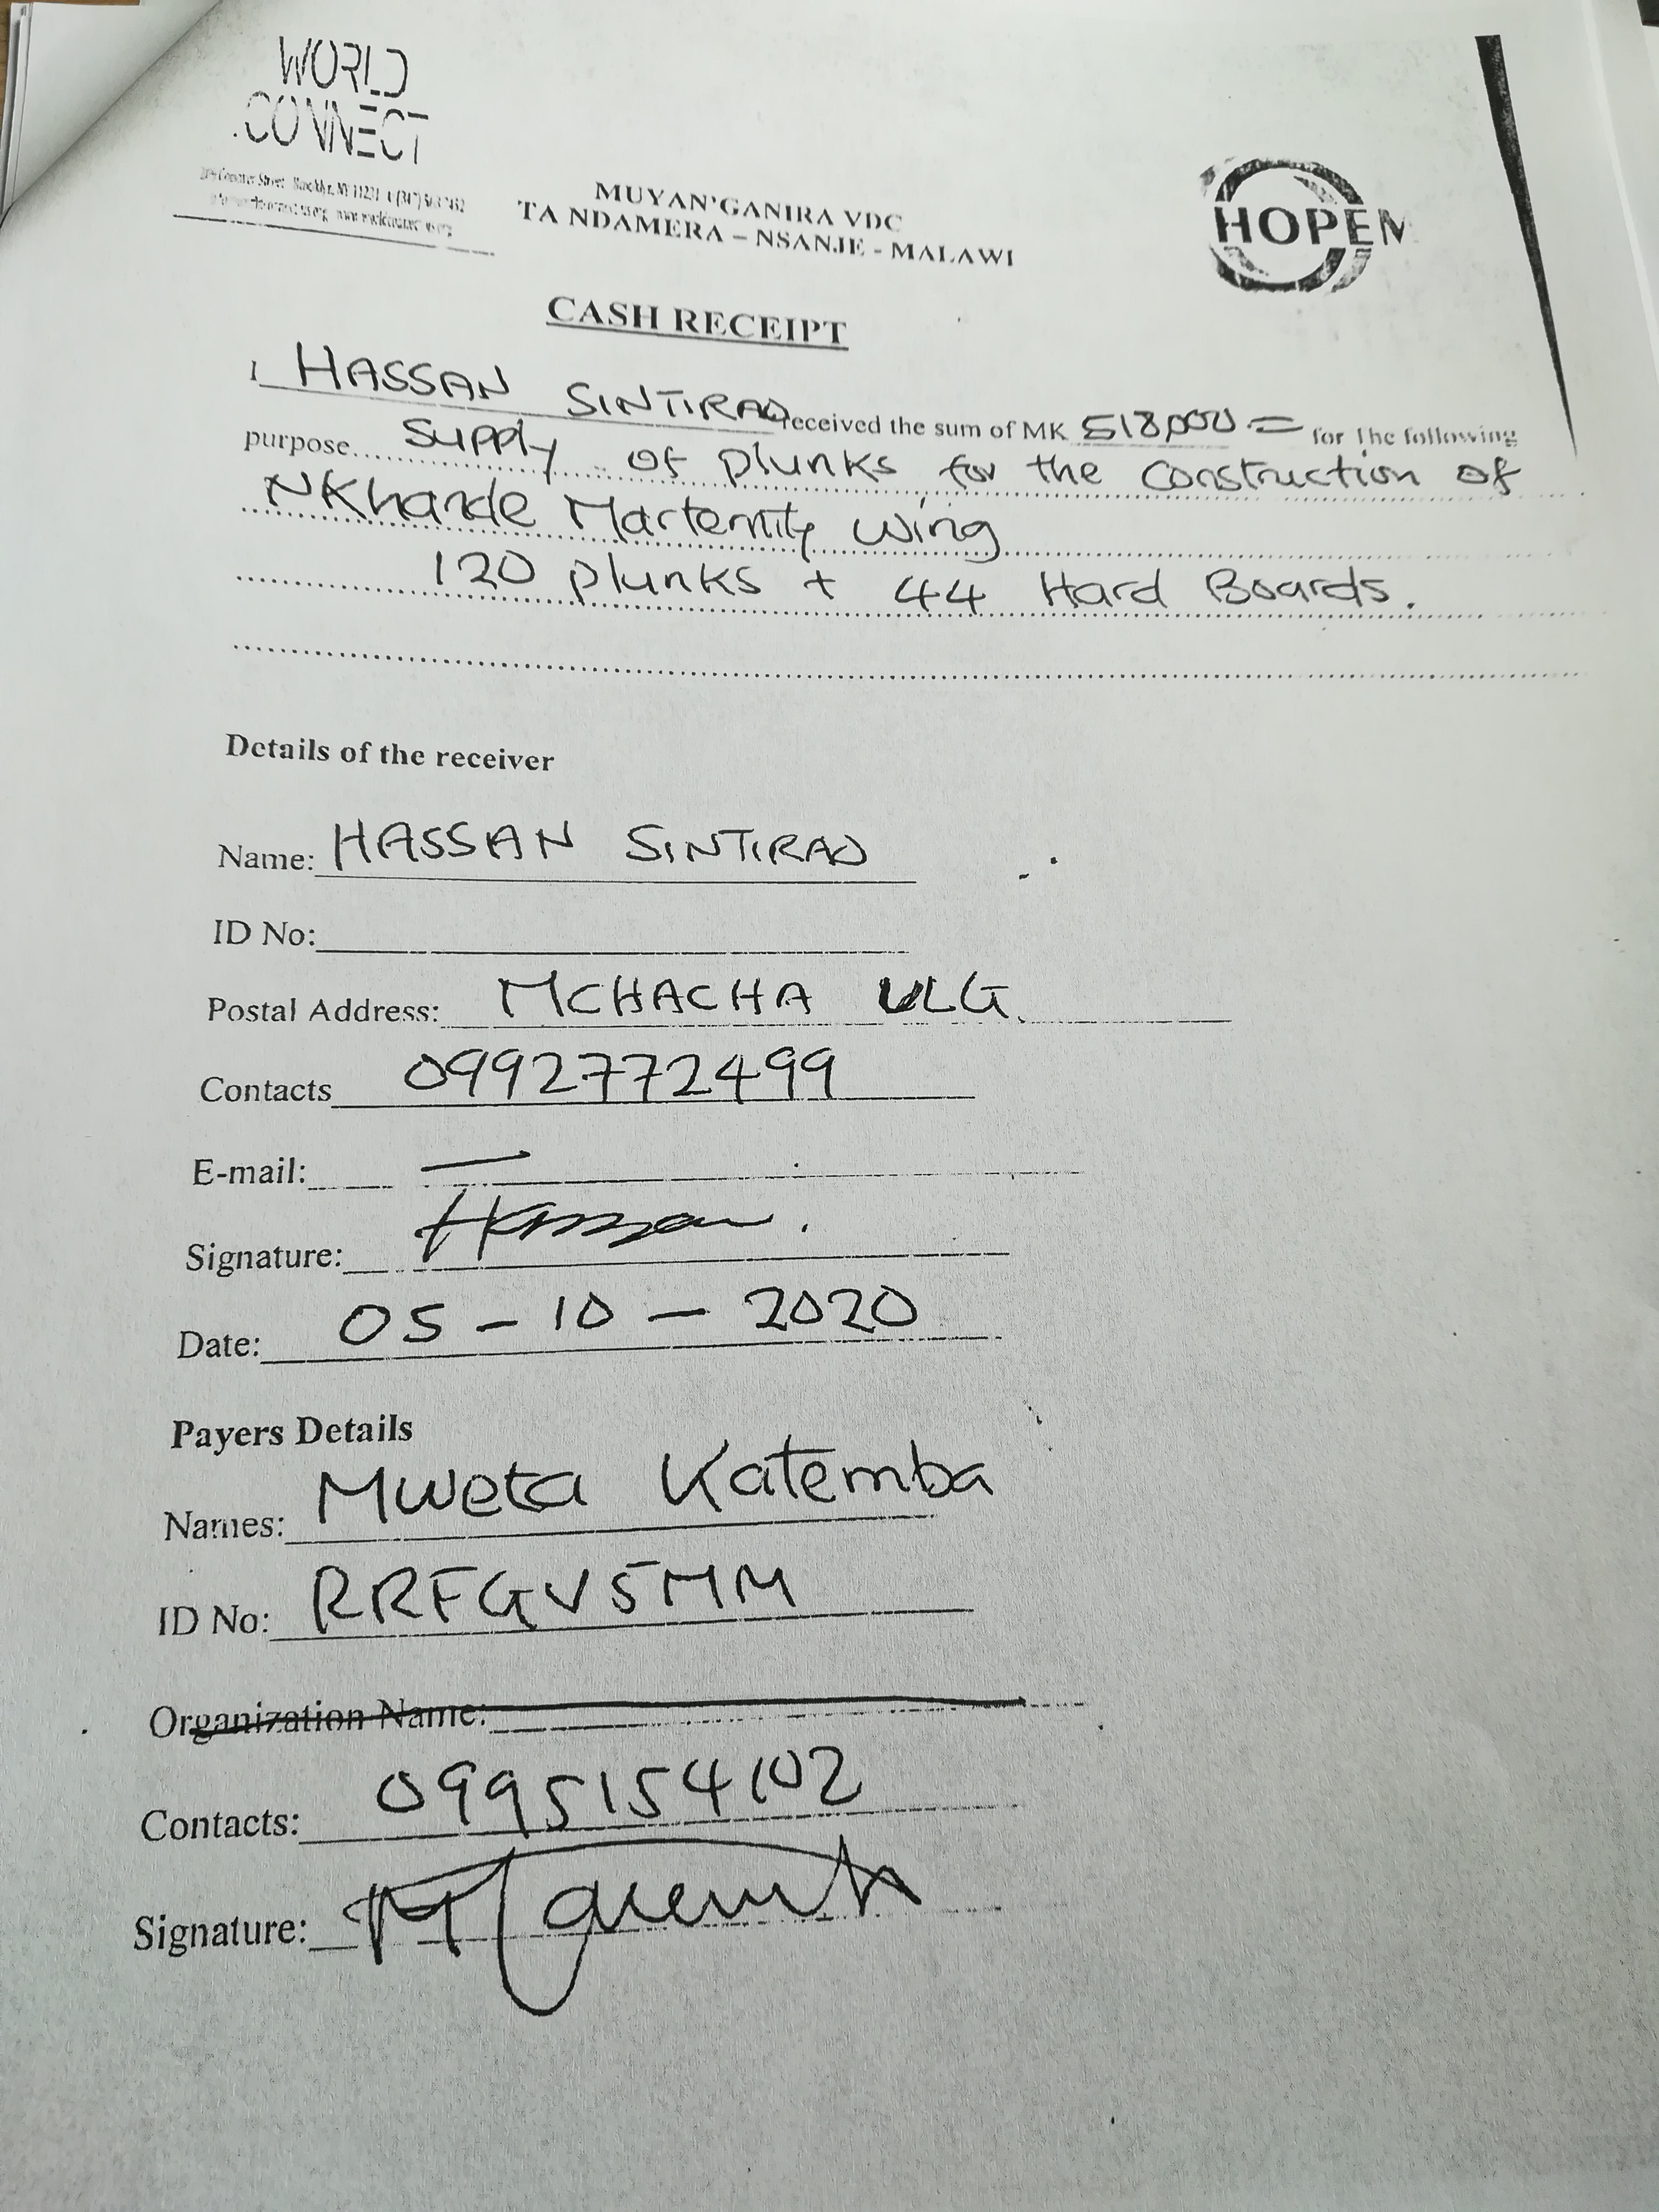 WORLD
CONNECT
MUYAN'GANIRA VDC
TA NDAMERA – NSANJE - MALAWI
HOPEM
CASH RECEIPT
I HASSAN SINTIRAO received the sum of MK 518,000 = for The following
purpose Supply of plunks for the Construction of
NKhande Marternity wing
120 plunks + 44 Hard Boards.
Details of the receiver
Name: HASSAN SINTIRAO
ID No:
Postal Address: MCHACHA VLG.
Contacts 0992772499
E-mail: —
Signature: Hassan.
Date: 05 - 10 - 2020
Payers Details
Names: Mweta Katemba
ID No: RRFGV5MM
Organization Name:
Contacts: 0995154102
Signature: